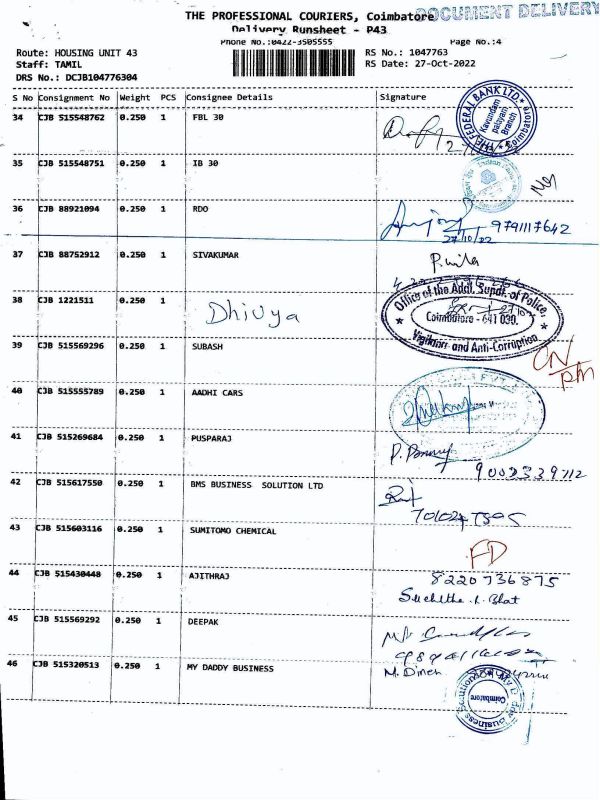 DOCUMENT DELIVERY
THE PROFESSIONAL COURIERS, Coimbatore
Delivery Runsheet - P43
Phone No.:0422-3505555 Page No.:4
Route: HOUSING UNIT 43 RS No.: 1047763
Staff: TAMIL RS Date: 27-Oct-2022
DRS No.: DCJB104776304
S No Consignment No Weight PCS Consignee Details Signature
34 CJB 515548762 0.250 1 FBL 30
THE FEDERAL BANK LTD. Kavundam palayam Branch Coimbatore
35 CJB 515548751 0.250 1 IB 30
36 CJB 88921094 0.250 1 RDO
9791117642
27/10/22
37 CJB 88752912 0.250 1 SIVAKUMAR
38 CJB 1221511 0.250 1 Dhivya
Office of the Addl. Supdt. of Police,
Coimbatore - 641 030.
Vigilance and Anti-Corruption
39 CJB 515569296 0.250 1 SUBASH
40 CJB 515555789 0.250 1 AADHI CARS
41 CJB 515269684 0.250 1 PUSPARAJ
42 CJB 515617550 0.250 1 BMS BUSINESS SOLUTION LTD
43 CJB 515603116 0.250 1 SUMITOMO CHEMICAL
FD
44 CJB 515430448 0.250 1 AJITHRAJ
8220736875
Suchitha .L. Bhat
45 CJB 515569292 0.250 1 DEEPAK
46 CJB 515320513 0.250 1 MY DADDY BUSINESS
M. Dinesh
Coimbatore